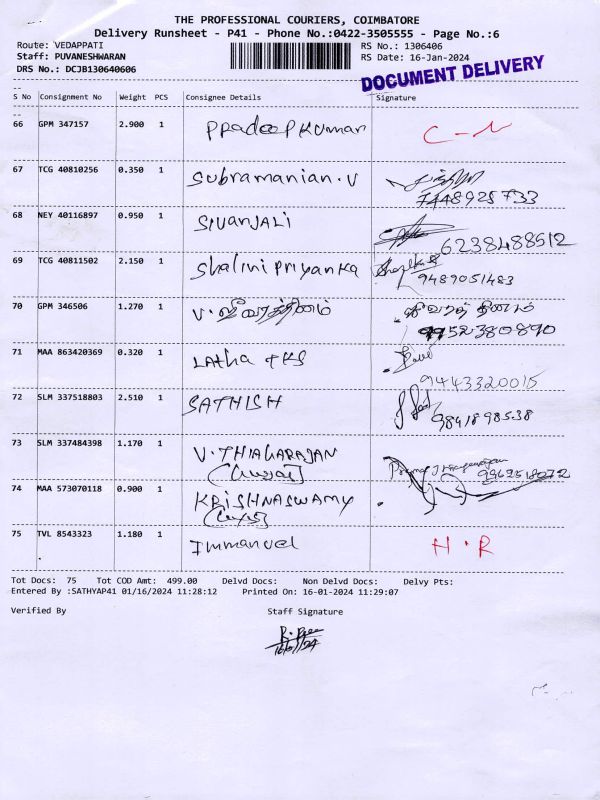 THE PROFESSIONAL COURIERS, COIMBATORE
Delivery Runsheet - P41 - Phone No.:0422-3505555 - Page No.:6
Route: VEDAPPATI RS No.: 1306406
Staff: PUVANESHWARAN RS Date: 16-Jan-2024
DRS No.: DCJB130640606
DOCUMENT DELIVERY
S No Consignment No Weight PCS Consignee Details Signature
66 GPM 347157 2.900 1 Pradeep Kumar C - N
67 TCG 40810256 0.350 1 Subramanian. V
7448925733
68 NEY 40116897 0.950 1 SIVANJALI 6238488512
69 TCG 40811502 2.150 1 Shalini Priyanka
9489051483
70 GPM 346506 1.270 1 V. ஜீவரத்தினம்
9952380890
71 MAA 863420369 0.320 1 Latha
9443320015
72 SLM 337518803 2.510 1 SATHISH 9841898538
73 SLM 337484398 1.170 1 V. THIAGARAJAN
74 MAA 573070118 0.900 1 KRISHNASWAMY
75 TVL 8543323 1.180 1 Immanuel H . R
Tot Docs: 75 Tot COD Amt: 499.00 Delvd Docs: Non Delvd Docs: Delvy Pts:
Entered By :SATHYAP41 01/16/2024 11:28:12 Printed On: 16-01-2024 11:29:07
Verified By Staff Signature